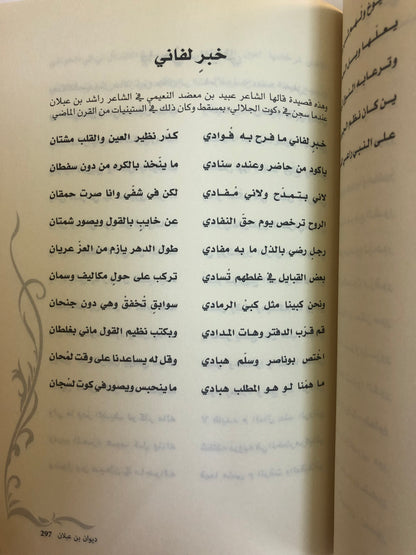 خبرٍ لفاني
وهذه قصيدة قالها الشاعر عبيد بن معضد النعيمي في الشاعر راشد بن عبلان
عندما سجن في «كوت الجلالي» بمسقط وكان ذلك في الستينيات من القرن الماضي:
خبرٍ لفاني ما فرح به فوادي كدّر نظير العين والقلب مشتان
ياكود من حاضر وعنده سنادي ما يتخذ بالكره من دون سفطان
لاني بتمدّح ولاني مفادي لكن في شفّي وانا صرت حمقان
الروح ترخص يوم حقّ النفادي عن خايبٍ بالقول ويصور شمتان
رجلٍ رضي بالذل ما به مفادي طول الدهر يازم من العزّ عريان
بعض القبايل في غلطهم تسادي تركب على حولٍ مكاليف وسمان
ونحن كبينا مثل كبيّ الرمادي سوابقٍ تخفق وهي دون جنحان
قم قرّب الدفتر وهات المدادي ويكتب نظيم القول ماني بغلطان
اختص بوناصر وسلّم هبادي وقل له يساعدنا على وقت لمحان
ما همّنا لو هو المطلب هبادي ما ينحبس ويصور في كوت لسجان
ديوان بن عبلان 297